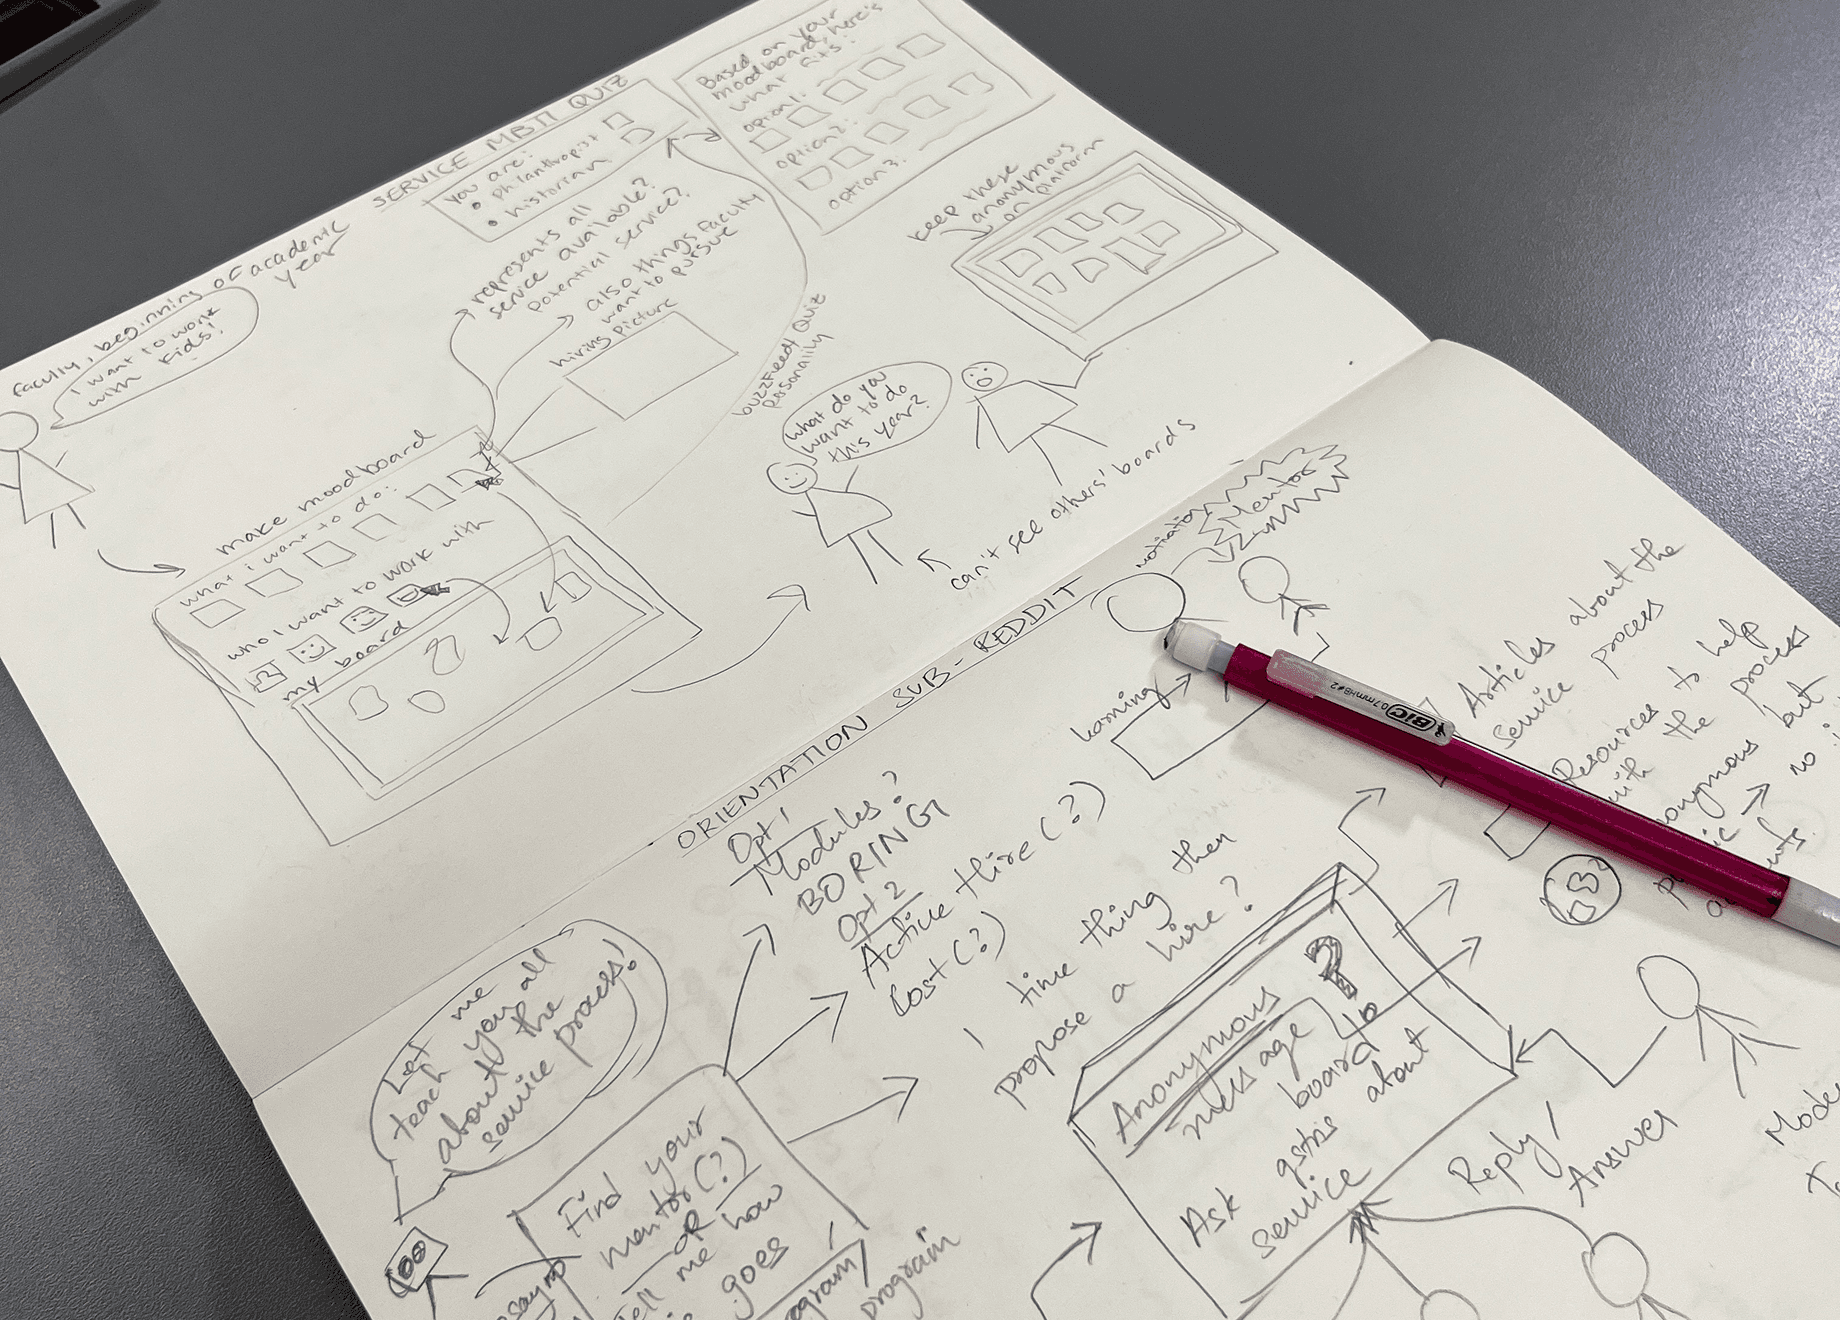 SERVICE MBTI QUIZ
faculty, beginning of academic
year
I want to work
with kids!
You are:
• philanthropist
• historian
Based on your
moodboard, here's
what fits:
option1:
option2:
option3:
represents all
service available?
potential service?
also things faculty
want to pursue
hiring picture
buzzfeed Quiz
Personality
keep these
anonymous
on platform
make moodboard
what i want to do:
who I want to work with
my board
What do you
want to do
this year?
can't see others' boards
ORIENTATION SUB-REDDIT
Mentor
Opt 1
Modules?
BORING
Opt 2
Active Hire (?)
Cost (?)
1 time thing then
propose a hire?
Let me
teach you all
about the
service process!
Find your
mentor (?)
OR
Tell me how
goes
program
Anonymous
message
board
Ask qstns about
service
Reply/
Answer
Articles about the
service process
Resources to help
with the process
but
no
BIC
0.7mm HB #2